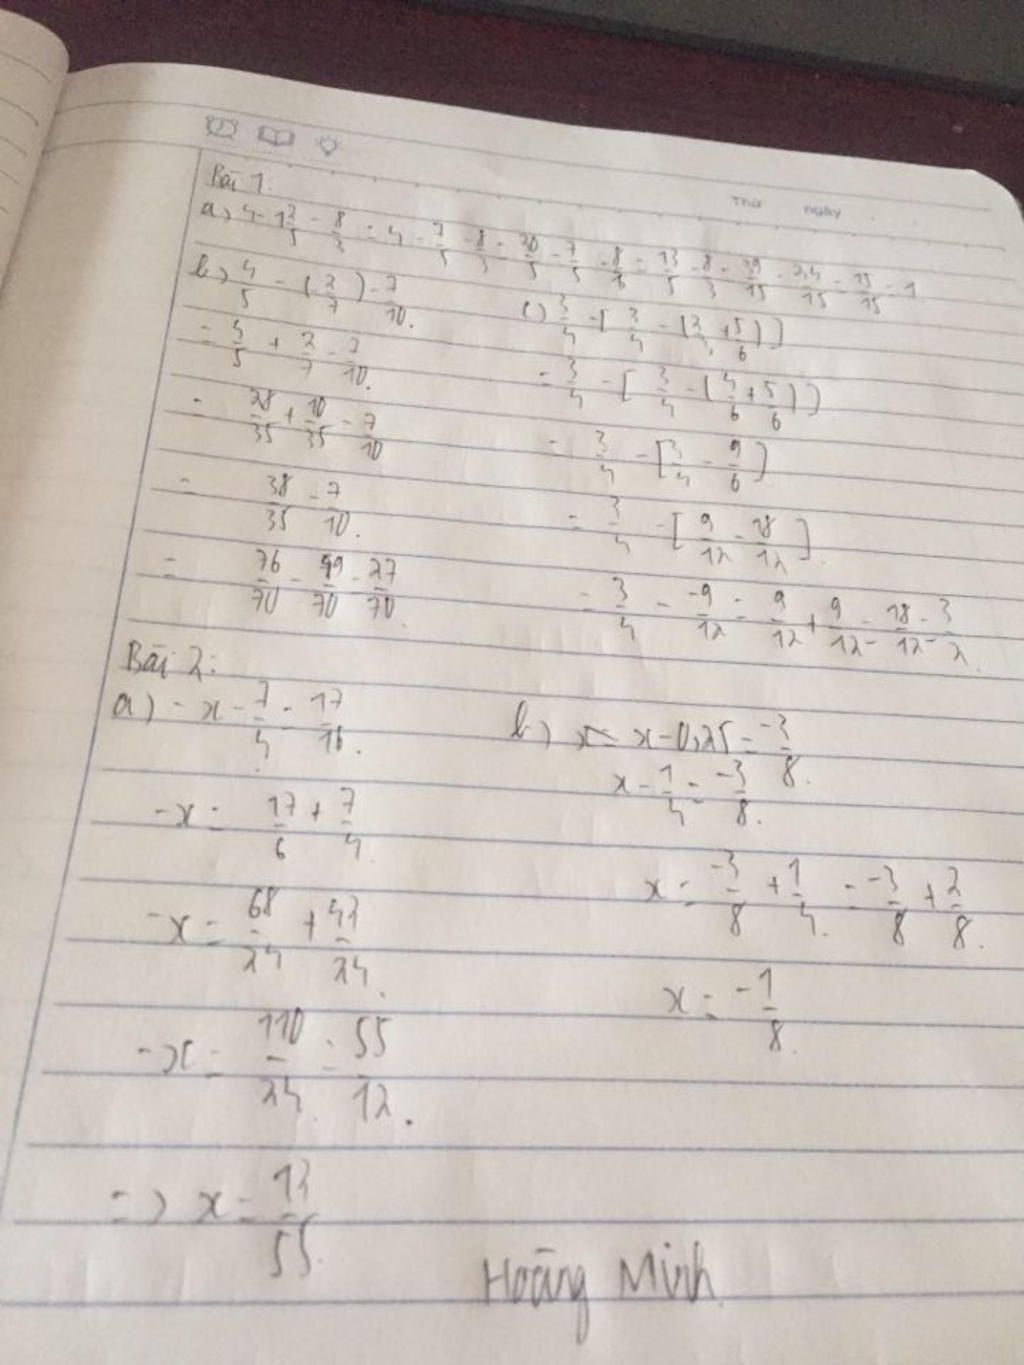 Thứ ngày
Bài 1:
a) 4 - 1 2/5 - 8/3 = 4 - 7/5 - 8/3 = 20/5 - 7/5 - 8/3 = 13/5 - 8/3 = 39/15 - 24/15 = 15/15 = 1
b) 4/5 - (2/7) - 7/10.
= 4/5 + 2/7 - 7/10.
= 28/35 + 10/35 - 7/10
= 38/35 - 7/10.
= 76/70 - 49/70 = 27/70.
c) 3/4 - [3/4 - (2/3 + 5/6)]
= 3/4 - [3/4 - (4/6 + 5/6)]
= 3/4 - [3/4 - 9/6]
= 3/4 - [9/12 - 18/12]
= 3/4 - -9/12 = 9/12 + 9/12 = 18/12 = 3/2.
Bài 2:
a) -x - 7/4 = 17/16.
-x = 17/6 + 7/4
-x = 68/24 + 42/24.
-x = 110/24 = 55/12.
=> x = 12/55
b) x - 0,25 = -3/8.
x - 1/4 = -3/8.
x = -3/8 + 1/4. = -3/8 + 2/8.
x = -1/8.
Hoàng Minh